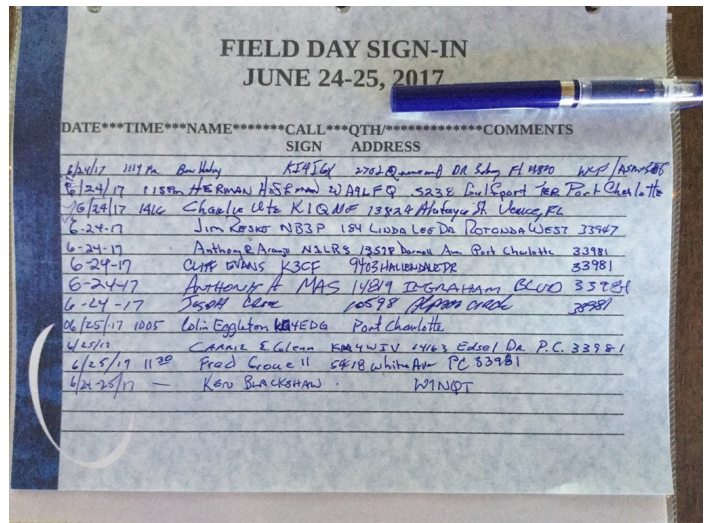 FIELD DAY SIGN-IN
JUNE 24-25, 2017
DATE***TIME***NAME*******CALL***QTH/*************COMMENTS
SIGN ADDRESS
6/24/17 1114 Pm KI4IGX 2702 DR FL WCF /
6/24/17 115Pm HERMAN WA9LFQ 5238 GulfPort TER Port Charlotte
6/24/17 1416 Charlie Ute 13824 St. Venice, FL
6-24-17 Jim RESKE NB3P 184 LINDA LEE DR ROTONDA WEST 33947
6-24-17 Anthony R N1LRS 13578 Darnell Ave Port Charlotte 33981
6-24-17 CLIFF EVANS K3CF 9403 HALLENDALE DR 33981
6-24-17 ANTHONY A MAS 14819 INGRAHAM BLVD 33981
6-24-17 Joseph 10598 circle 33981
06/25/17 1005 Colin Eggleton KM4EDG Port Charlotte
6/25/17 CARRIE E. Glenn KM4WIV 14163 Edsel Dr. P.C. 33981
6/25/17 11 30 Fred Crouell 5418 White Ave PC 33981
6/24-25/17 — KEN BLACKSHAW W1NQT